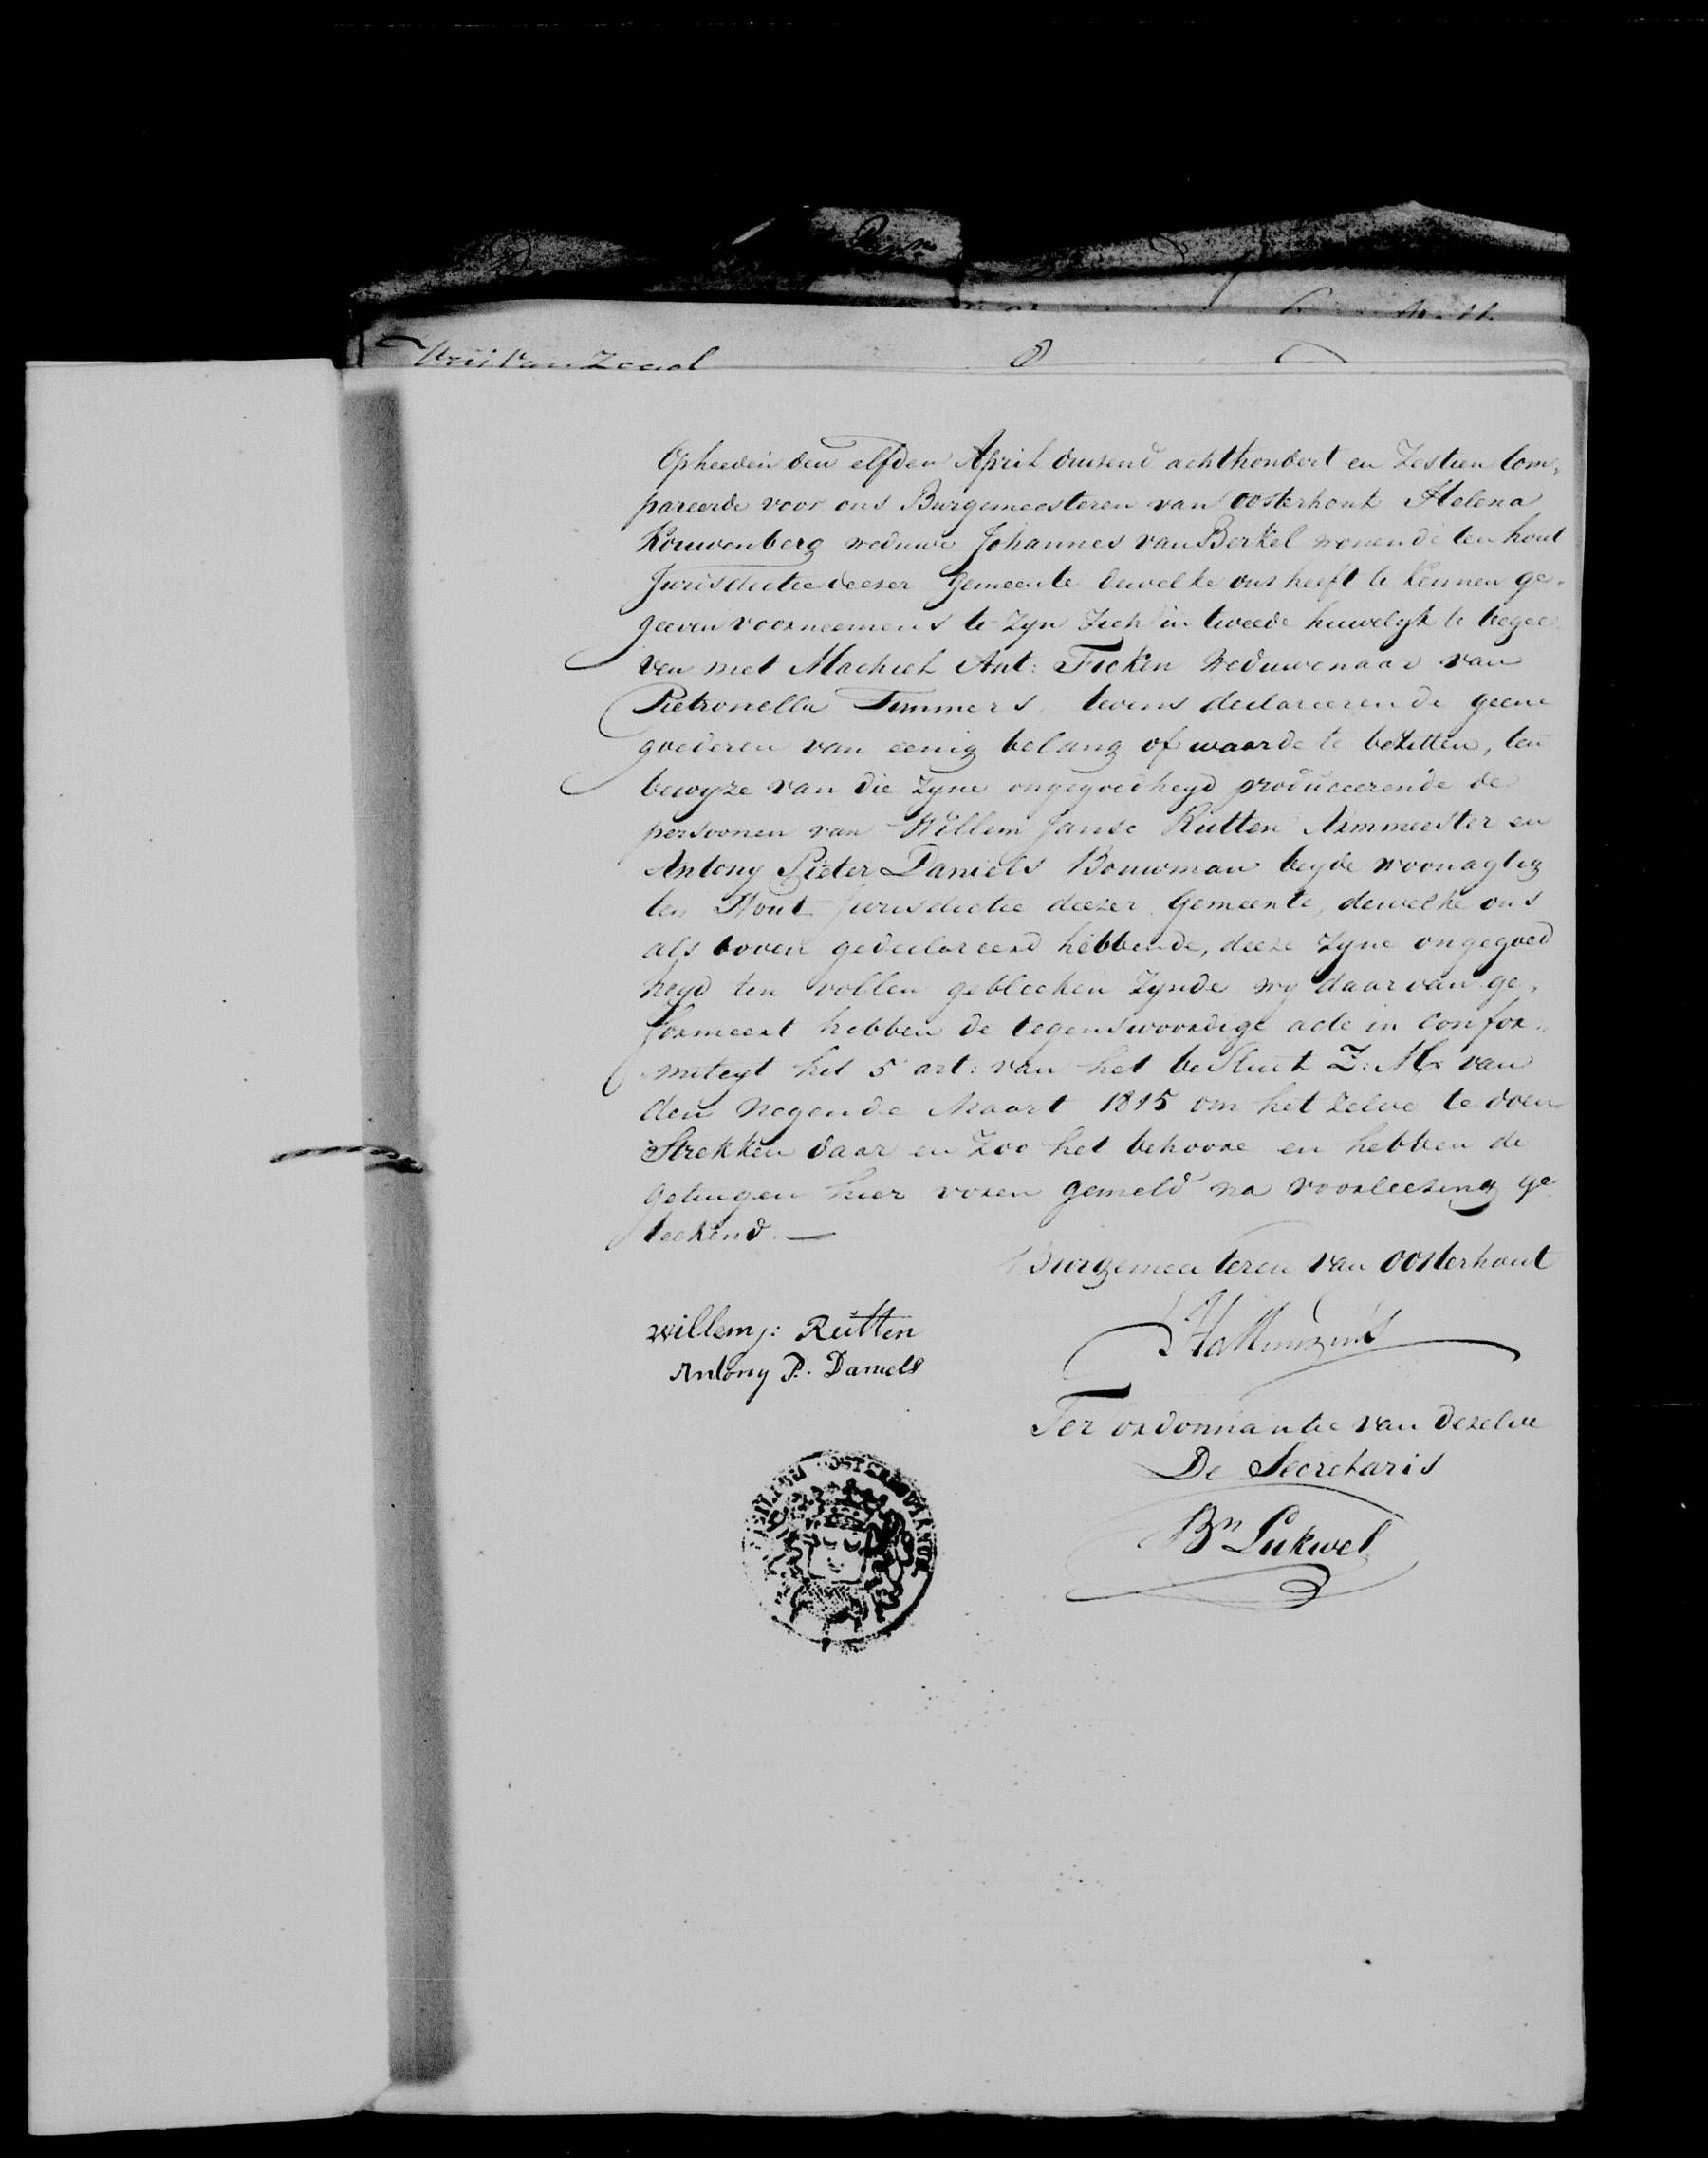 Opheeden den elfden April duisend achthondert en Zestien Com,
pareerde voor ons Burgemeesteren van Oosterhout Helena
Kouwenberg weduwe Johannes van Berkel wonende ten hout
Jurisdictie deeser Gemeente dewelke ons heeft te kennen ge,
geeven voorneemens te Zyn Zich in tweede huwelyk te begee
ven met Machiel Ant: Ficken Weduwenaar van
Pietronella Timmers tevens declareerende geene
goederen van eenig belang of waarde te bezitten, ten
bewyze van die Zyne ongegoedheyd produceerende de
persoonen van Willem Janse Rutten Armmeester en
Antony Pieter Daniels Bouwman beyde woonagtig
ten Hout Jurisdictie deezer Gemeente, dewelke ons
als boven gedeclareerd hebbende, deeze Zyne ongegoed
heyd ten vollen gebleeken Zynde wy daar van ge,
formeert hebben de tegenswoordige acte in Confor,,
miteyt het 5 art: van het besluit Z: M: van
den Negende Maart 1815 om het zelve te doen
Strekken daar en Zoo het behoore en hebben de
getuigen hier voren gemeld na voorleesing ge
teekend. —
Burgemeesteren van Oosterhout
Willem j: Rutten
Antony P. Daniels
Ter ordonnantie van dezelve
De Secretaris
Bn Lukwel